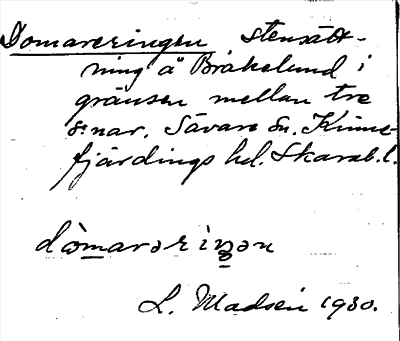 Domareringen stensätt-
ning å Bråkelund i
gränsen mellan tre
s:nar. Sävare sn. Kinne-
fjärdings hd. Skarab. l.
dòmarəriŋən
L. Madsén 1930.